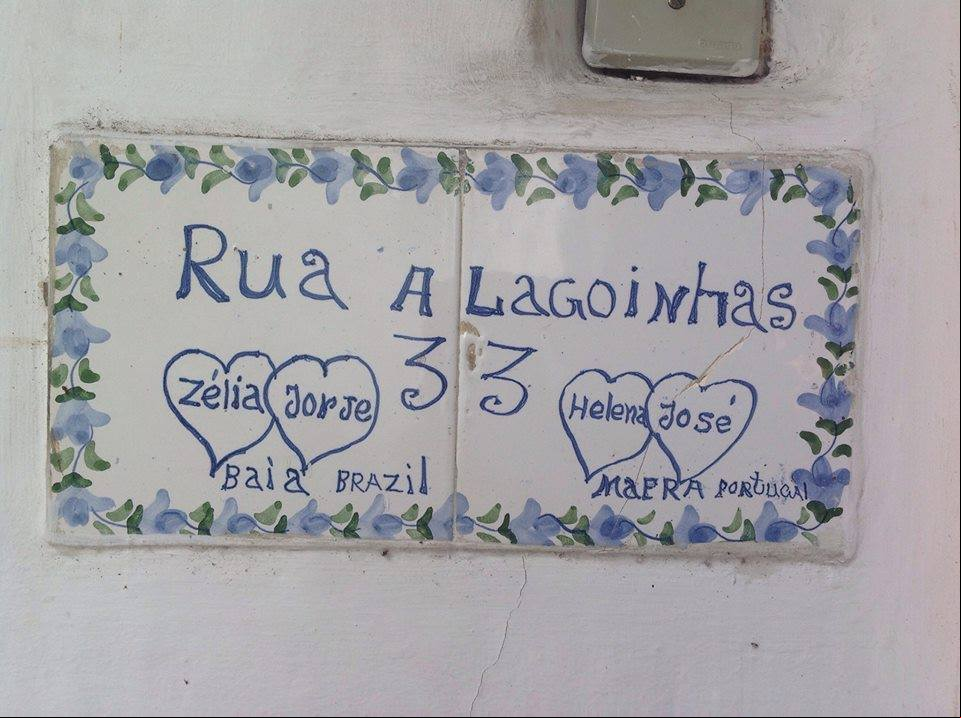 Rua A LAGOINhas
33
Zélia Jorje
BAiA BRAZil
Helena José
MAFRA PORTUGAl